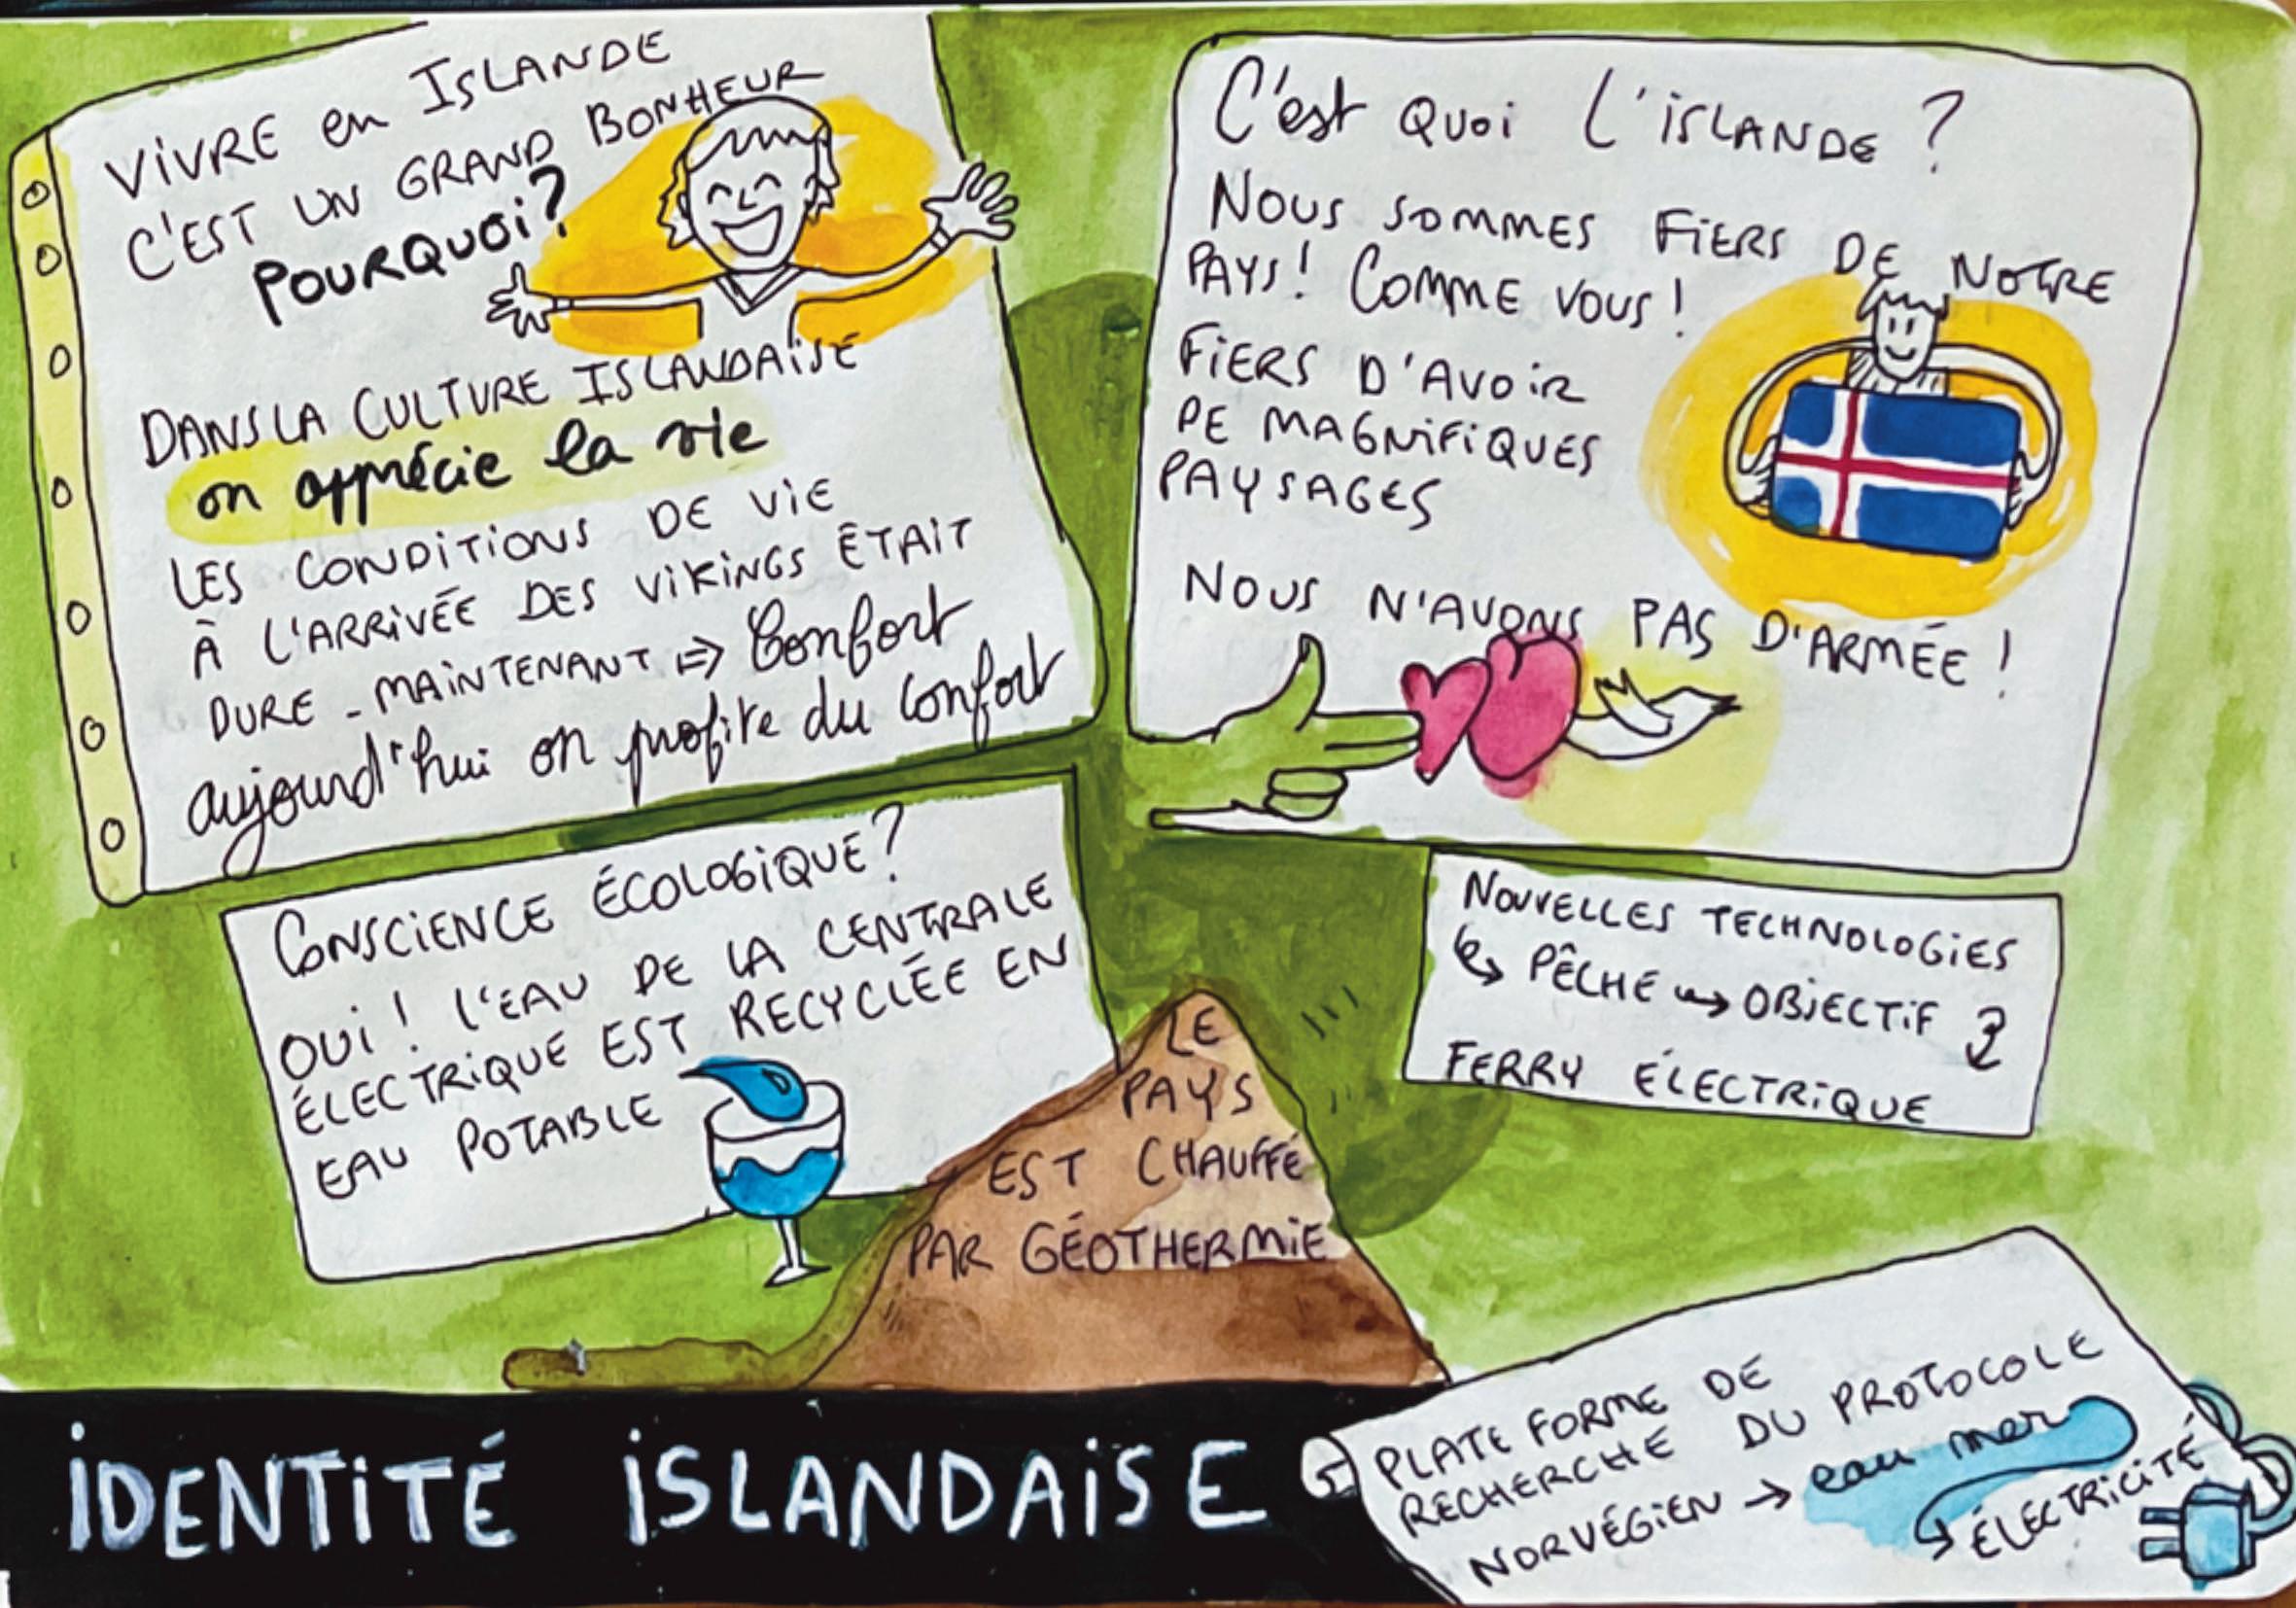 ViVRE en ISLANDE
C'EST UN GRAND BONHEUR
POURQUOi?
DANS LA CULTURE ISLANDAiSE
on apprécie la vie
LES CONDITIONS DE ViE
À L'ARRiVÉE DES ViKiNGS ÉTAiT
DURE - MAiNTENANT => Confort
aujourd'hui on profite du confort
C'est QUOi L'iSLANDE ?
NOUS SOMMES FiERS DE NOTRE
PAYS! COMME VOUS!
FiERS D'AVOiR
DE MAGNiFiQUES
PAYSAGES
NOUS N'AVONS PAS D'ARMÉE !
CONSCiENCE ÉCOLOGiQUE?
OUi! L'EAU DE LA CENTRALE
ÉLECTRiQUE EST RECYCLÉE EN
EAU POTABLE
NOUVELLES TECHNOLOGiES
↳ PÊCHE → OBJECTiF
FERRY ÉLECTRiQUE
LE
PAYS
EST CHAUFFÉ
PAR GÉOTHERMiE
iDENTiTÉ iSLANDAiSE
PLATE FORME DE
RECHERCHE DU PROTOCOLE
NORVÉGiEN → eau mer
↳ ÉLECTRiCiTÉ